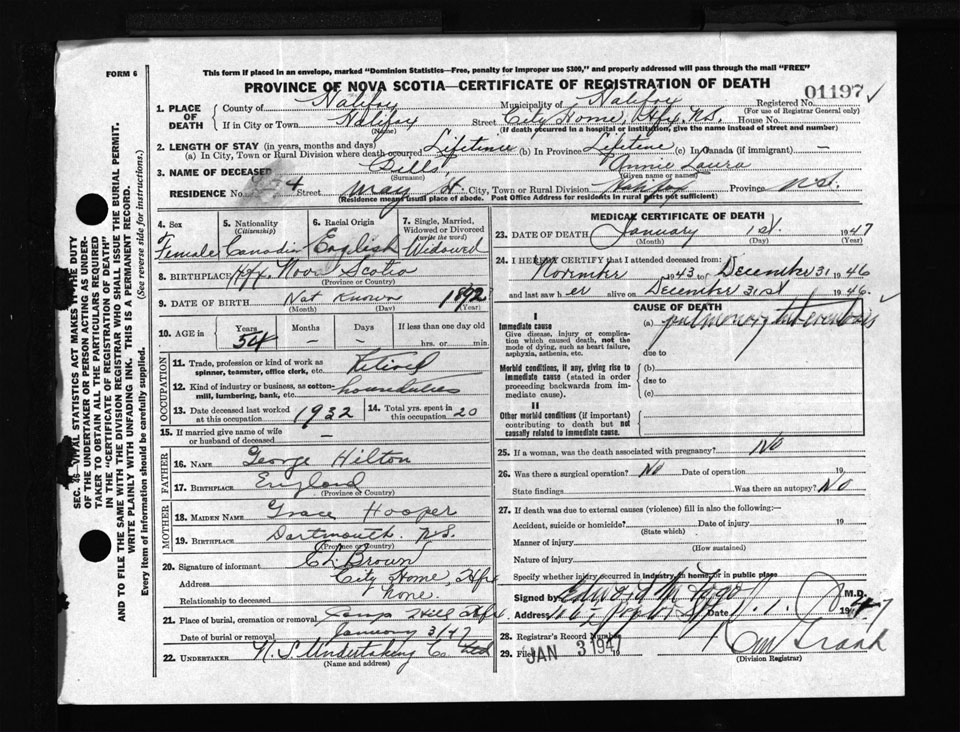 FORM 6
This form if placed in an envelope, marked "Dominion Statistics—Free, penalty for improper use $300," and properly addressed will pass through the mail "FREE"
PROVINCE OF NOVA SCOTIA—CERTIFICATE OF REGISTRATION OF DEATH
01197
1. PLACE OF DEATH County of Halifax Municipality of Halifax Registered No.
(For use of Registrar General only)
If in City or Town Halifax Street City Home, Hfx. N.S. House No.
(Name) (If death occurred in a hospital or institution, give the name instead of street and number)
2. LENGTH OF STAY (in years, months and days)
(a) In City, Town or Rural Division where death occurred Lifetime (b) In Province Lifetime (c) In Canada (if immigrant) —
3. NAME OF DECEASED Gills Annie Laura
(Surname) (Given name or names)
RESIDENCE No. 4 Street May St. City, Town or Rural Division Halifax Province N.S.
(Residence means usual place of abode. Post Office Address for residents in rural parts not sufficient)
4. Sex Female
5. Nationality (Citizenship) Canadian
6. Racial Origin English
7. Single, Married, Widowed or Divorced (write the word) Widowed
8. BIRTHPLACE Hfx. Nova Scotia
(Province or Country)
9. DATE OF BIRTH Not Known 1892
(Month) (Day) (Year)
10. AGE in Years Months Days If less than one day old
54 — — hrs. or min.
OCCUPATION
11. Trade, profession or kind of work as spinner, teamster, office clerk, etc. Retired
12. Kind of industry or business, as cotton-mill, lumbering, bank, etc.
13. Date deceased last worked at this occupation 1932
14. Total yrs. spent in this occupation 20
15. If married give name of wife or husband of deceased —
FATHER
16. NAME George Hilton
17. BIRTHPLACE England
(Province or Country)
MOTHER
18. MAIDEN NAME Grace Hooper
19. BIRTHPLACE Dartmouth N.S.
(Province or Country)
20. Signature of informant Brown
Address City Home, Hfx
Relationship to deceased None.
21. Place of burial, cremation or removal Camp Hill Hfx.
Date of burial or removal January 3/47
22. UNDERTAKER N.S. Undertaking Co. Ltd
(Name and address)
MEDICAL CERTIFICATE OF DEATH
23. DATE OF DEATH January 1st. 1947
(Month) (Day) (Year)
24. I HEREBY CERTIFY that I attended deceased from:
November 1943 to December 31 1946
and last saw her alive on December 31st 1946.
CAUSE OF DEATH
I
Immediate cause
Give disease, injury or complication which caused death, not the mode of dying, such as heart failure, asphyxia, asthenia, etc.
(a) pulmonary tuberculosis
due to
Morbid conditions, if any, giving rise to immediate cause (stated in order proceeding backwards from immediate cause).
(b)
due to
(c)
II
Other morbid conditions (if important) contributing to death but not causally related to immediate cause.
25. If a woman, was the death associated with pregnancy? No
26. Was there a surgical operation? No Date of operation 19
State findings Was there an autopsy? No
27. If death was due to external causes (violence) fill in also the following:—
Accident, suicide or homicide? Date of injury 19
(State which)
Manner of injury
(How sustained)
Nature of injury
Specify whether injury occurred in industry, in home, or in public place
Signed by M.D.
Address Date 1947
28. Registrar's Record Number
29. Filed JAN 3 1947 19
(Division Registrar)
SEC. VITAL STATISTICS ACT MAKES IT THE DUTY OF THE UNDERTAKER OR PERSON ACTING AS UNDERTAKER TO OBTAIN ALL THE PARTICULARS REQUIRED IN THE "CERTIFICATE OF REGISTRATION OF DEATH" AND TO FILE THE SAME WITH THE DIVISION REGISTRAR WHO SHALL ISSUE THE BURIAL PERMIT.
WRITE PLAINLY WITH UNFADING INK. THIS IS A PERMANENT RECORD.
Every item of information should be carefully supplied. (See reverse side for instructions.)